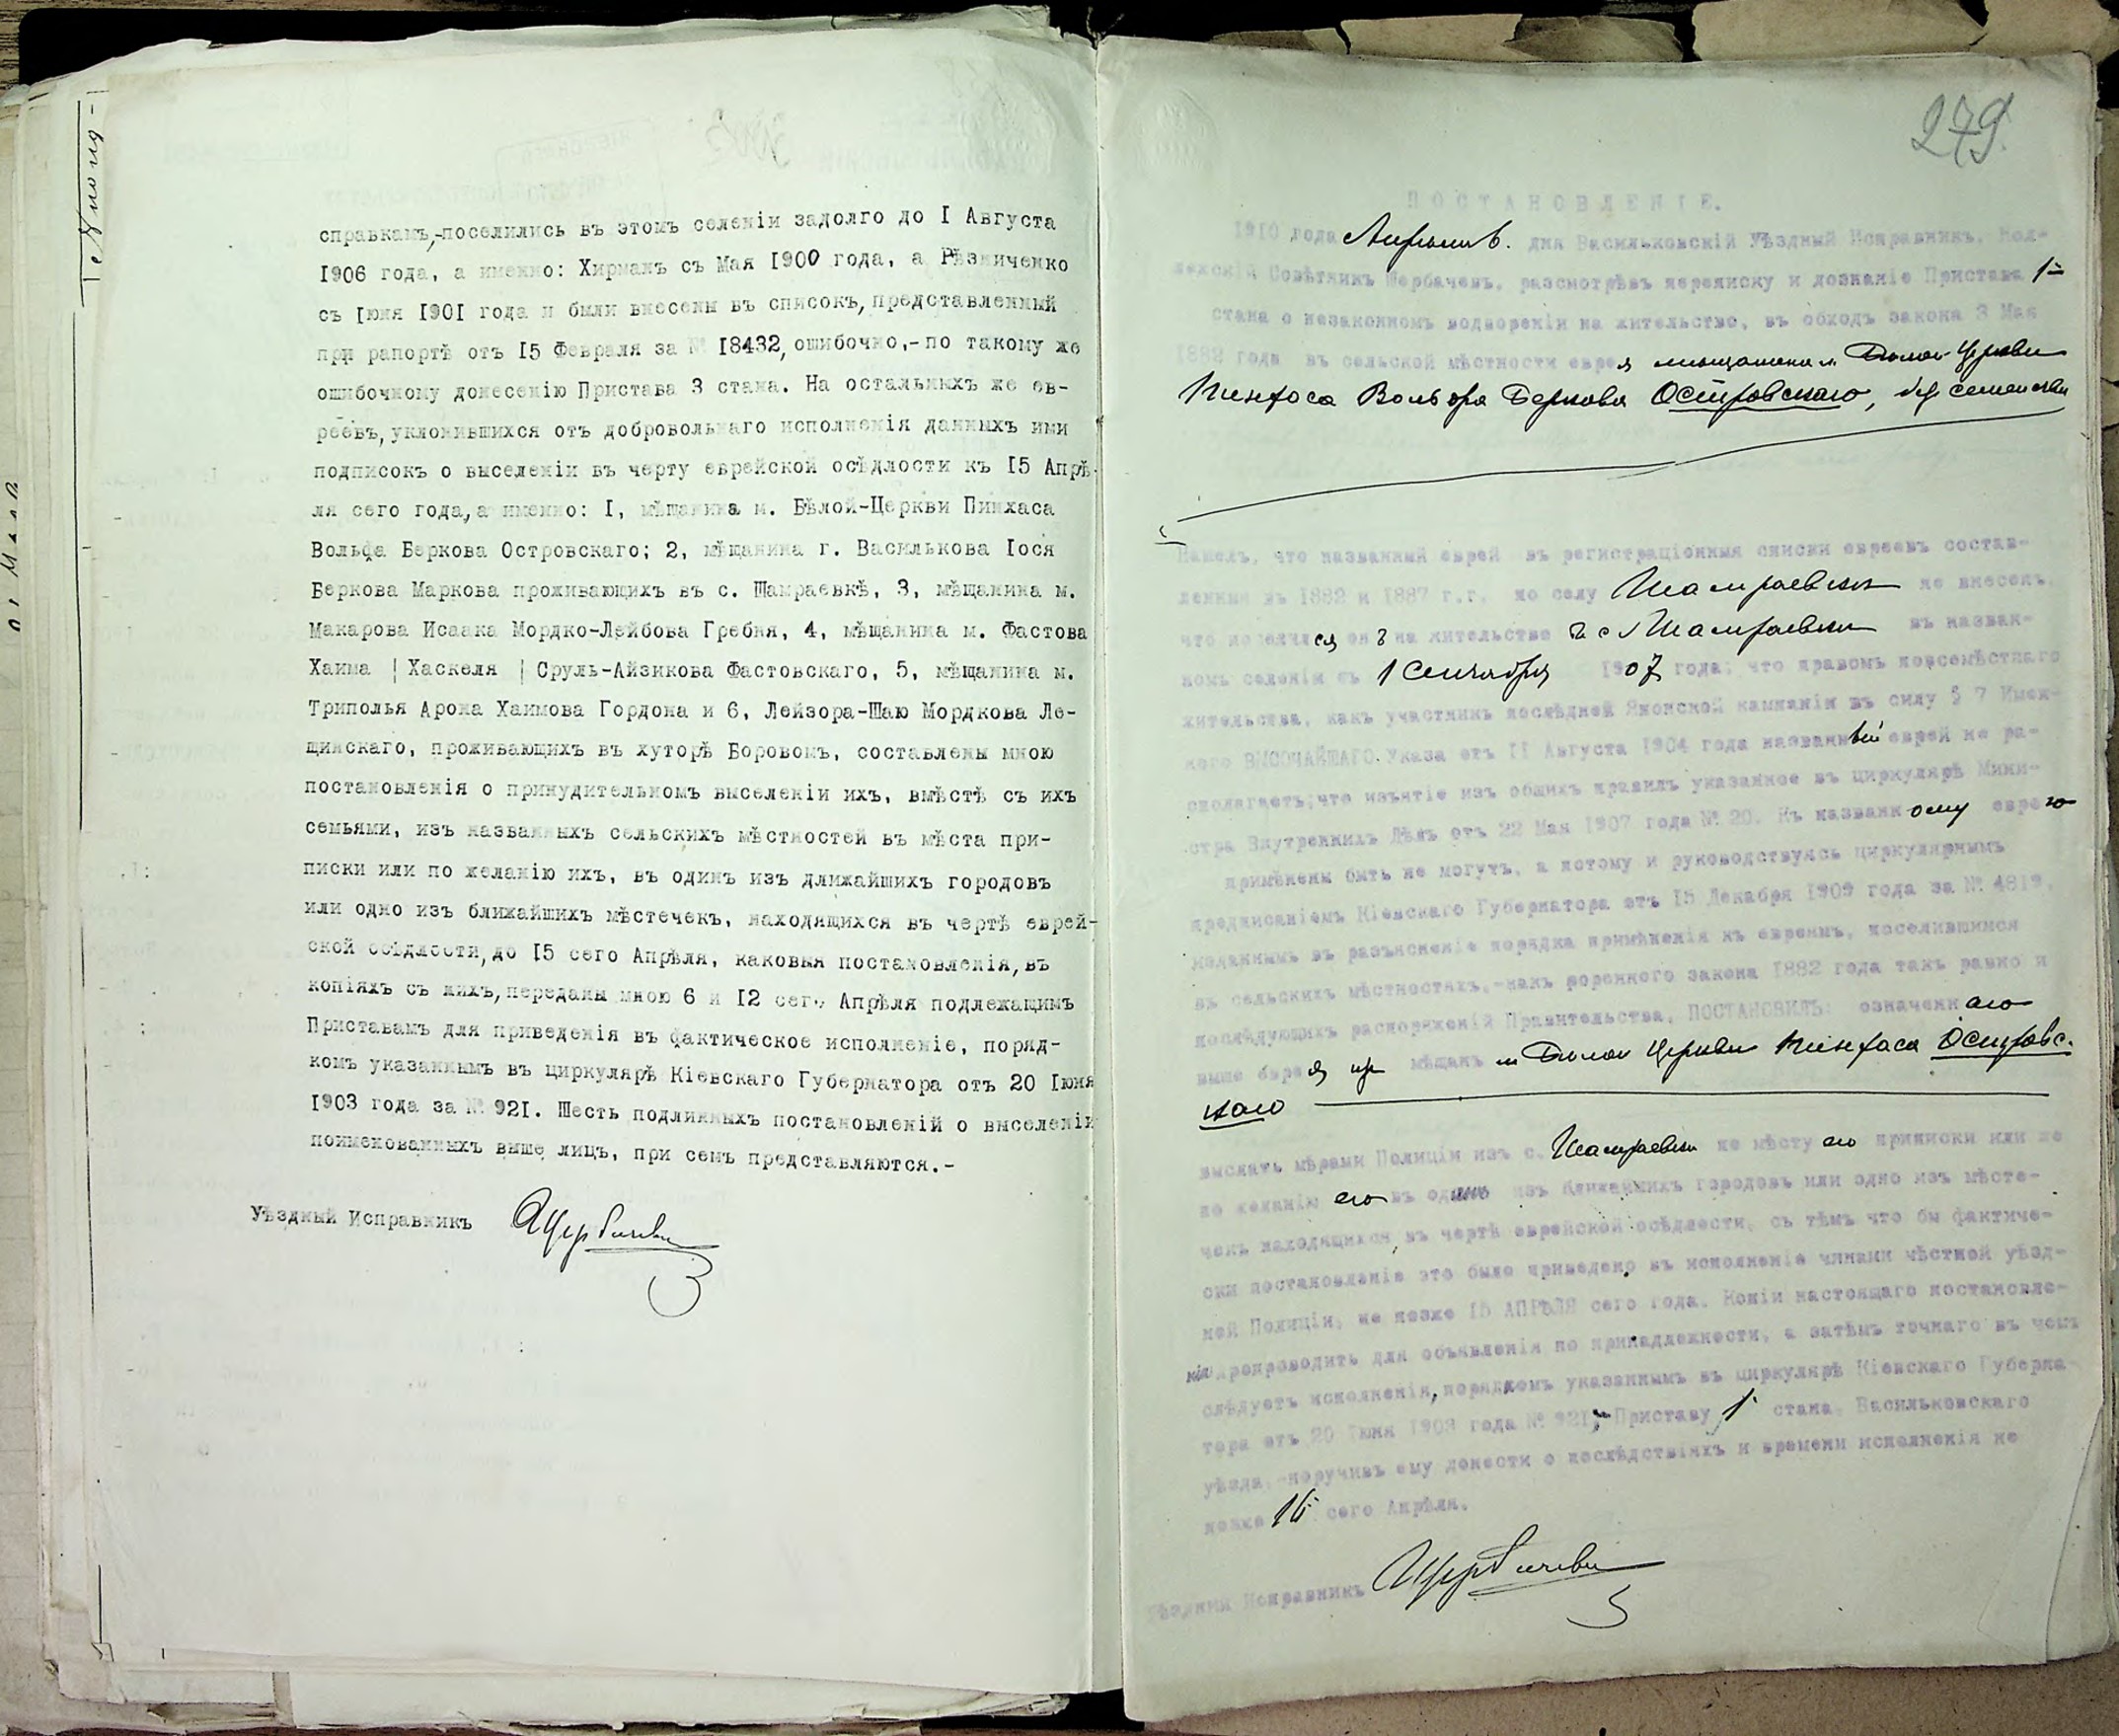 справкамъ,-поселились въ этомъ селеніи задолго до I Августа
1906 года, а именно: Хирмакъ съ Мая 1900 года, а Рѣзниченко
съ Іюня 1901 года и были внесены въ списокъ, представленный
при рапортѣ отъ 15 Февраля за № 18432, ошибочно,-по такому же
ошибочному донесенію Пристава 3 стана. На остальныхъ же ев-
реевъ, уклонившихся отъ добровольнаго исполненія данныхъ ими
подписокъ о выселеніи въ черту еврейской осѣдлости къ 15 Апрѣ-
ля сего года, а именно: I, мѣщанина м. Бѣлой-Церкви Пинхаса
Вольфа Беркова Островскаго; 2, мѣщанина г. Василькова Іося
Беркова Маркова проживающихъ въ с. Шамраевкѣ, 3, мѣщанина м.
Макарова Исаака Мордко-Лейбова Гребня, 4, мѣщанина м. Фастова
Хаима | Хаскеля | Сруль-Айзикова Фастовскаго, 5, мѣщанина м.
Триполья Арона Хаимова Гордона и 6, Лейзора-Шаю Мордкова Ле-
щинскаго, проживающихъ въ хуторѣ Боровомъ, составлены мною
постановленія о принудительномъ выселеніи ихъ, вмѣстѣ съ ихъ
семьями, изъ названныхъ сельскихъ мѣстностей въ мѣста при-
писки или по желанію ихъ, въ одинъ изъ длижайшихъ городовъ
или одно изъ ближайшихъ мѣстечекъ, находящихся въ чертѣ еврей-
ской осѣдлости, до 15 сего Апрѣля, каковыя постановленія, въ
копіяхъ съ нихъ, переданы мною 6 и 12 сего Апрѣля подлежащимъ
Приставамъ для приведенія въ фактическое исполненіе, поряд-
комъ указаннымъ въ циркулярѣ Кіевскаго Губернатора отъ 20 Іюня
1903 года за № 921. Шесть подлинныхъ постановленій о выселеніи
поименованныхъ выше лицъ, при семъ представляются.-
Уѣздный Исправникъ Щербачевъ
279
ПОСТАНОВЛЕНІЕ.
1910 года Апрѣля 6. дня Васильковскій Уѣздный Исправникъ, Кол-
лежскій Совѣтникъ Щербачевъ, разсмотрѣвъ переписку и дознаніе Пристава 1-
стана о незаконномъ водвореніи на жительство, въ обходъ закона 3 Мая
1882 года въ сельской мѣстности еврея мѣщанина м. Бѣлой-Церкви
Пинхоса Вольфа Беркова Островскаго, семейства
Нашелъ, что названный еврей въ регистраціонныя списки евреевъ состав-
ленныя въ 1882 и 1887 г.г. по селу Шамраевкѣ не внесенъ,
что поселился онъ на жительство въ с Шамраевки въ назван-
номъ селеніи съ 1 Сентября 1907 года; что правомъ повсемѣстнаго
жительства, какъ участникъ послѣдней Японской кампаніи въ силу § 7 Имен-
ного ВЫСОЧАЙШАГО Указа отъ 11 Августа 1904 года названный еврей не ра-
сполагаетъ; что изъятіе изъ общихъ правилъ указанное въ циркулярѣ Мини-
стра Внутреннихъ Дѣлъ отъ 22 Мая 1907 года № 20. Къ названному еврею
примѣнены быть не могутъ, а потому и руководствуясь циркулярнымъ
предписаніемъ Кіевскаго Губернатора отъ 15 Декабря 1909 года за № 4819,
изданнымъ въ разъясненіе порядка примѣненія къ евреямъ, поселившимся
въ сельскихъ мѣстностяхъ,-какъ коренного закона 1882 года такъ равно и
послѣдующихъ распоряженій Правительства, ПОСТАНОВИЛЪ: означеннаго
выше еврея мѣщан м Бѣлой Церкви Пинхаса Островс-
каго
выслать мѣрами Полиціи изъ с. Шамраевки по мѣсту его приписки или же
по желанію его въ одинъ изъ ближайшихъ городовъ или одно изъ мѣсте-
чекъ находящихся въ чертѣ еврейской осѣдлости, съ тѣмъ что бы фактиче-
ски постановленіе это было приведено въ исполненіе чинами мѣстной уѣзд-
ной Полиціи, не позже 15 АПРѢЛЯ сего года. Копіи настоящаго постановле-
нія препроводить для объявленія по принадлежности, а затѣмъ точнаго въ чемъ
слѣдуетъ исполненія, порядкомъ указаннымъ въ циркулярѣ Кіевскаго Губерна-
тора отъ 20 Іюня 1903 года № 921,-Приставу 1 стана, Васильковскаго
уѣзда,-поручивъ ему донести о послѣдствіяхъ и времени исполненія не
позже 16 сего Апрѣля.
Уѣздный Исправникъ Щербачевъ